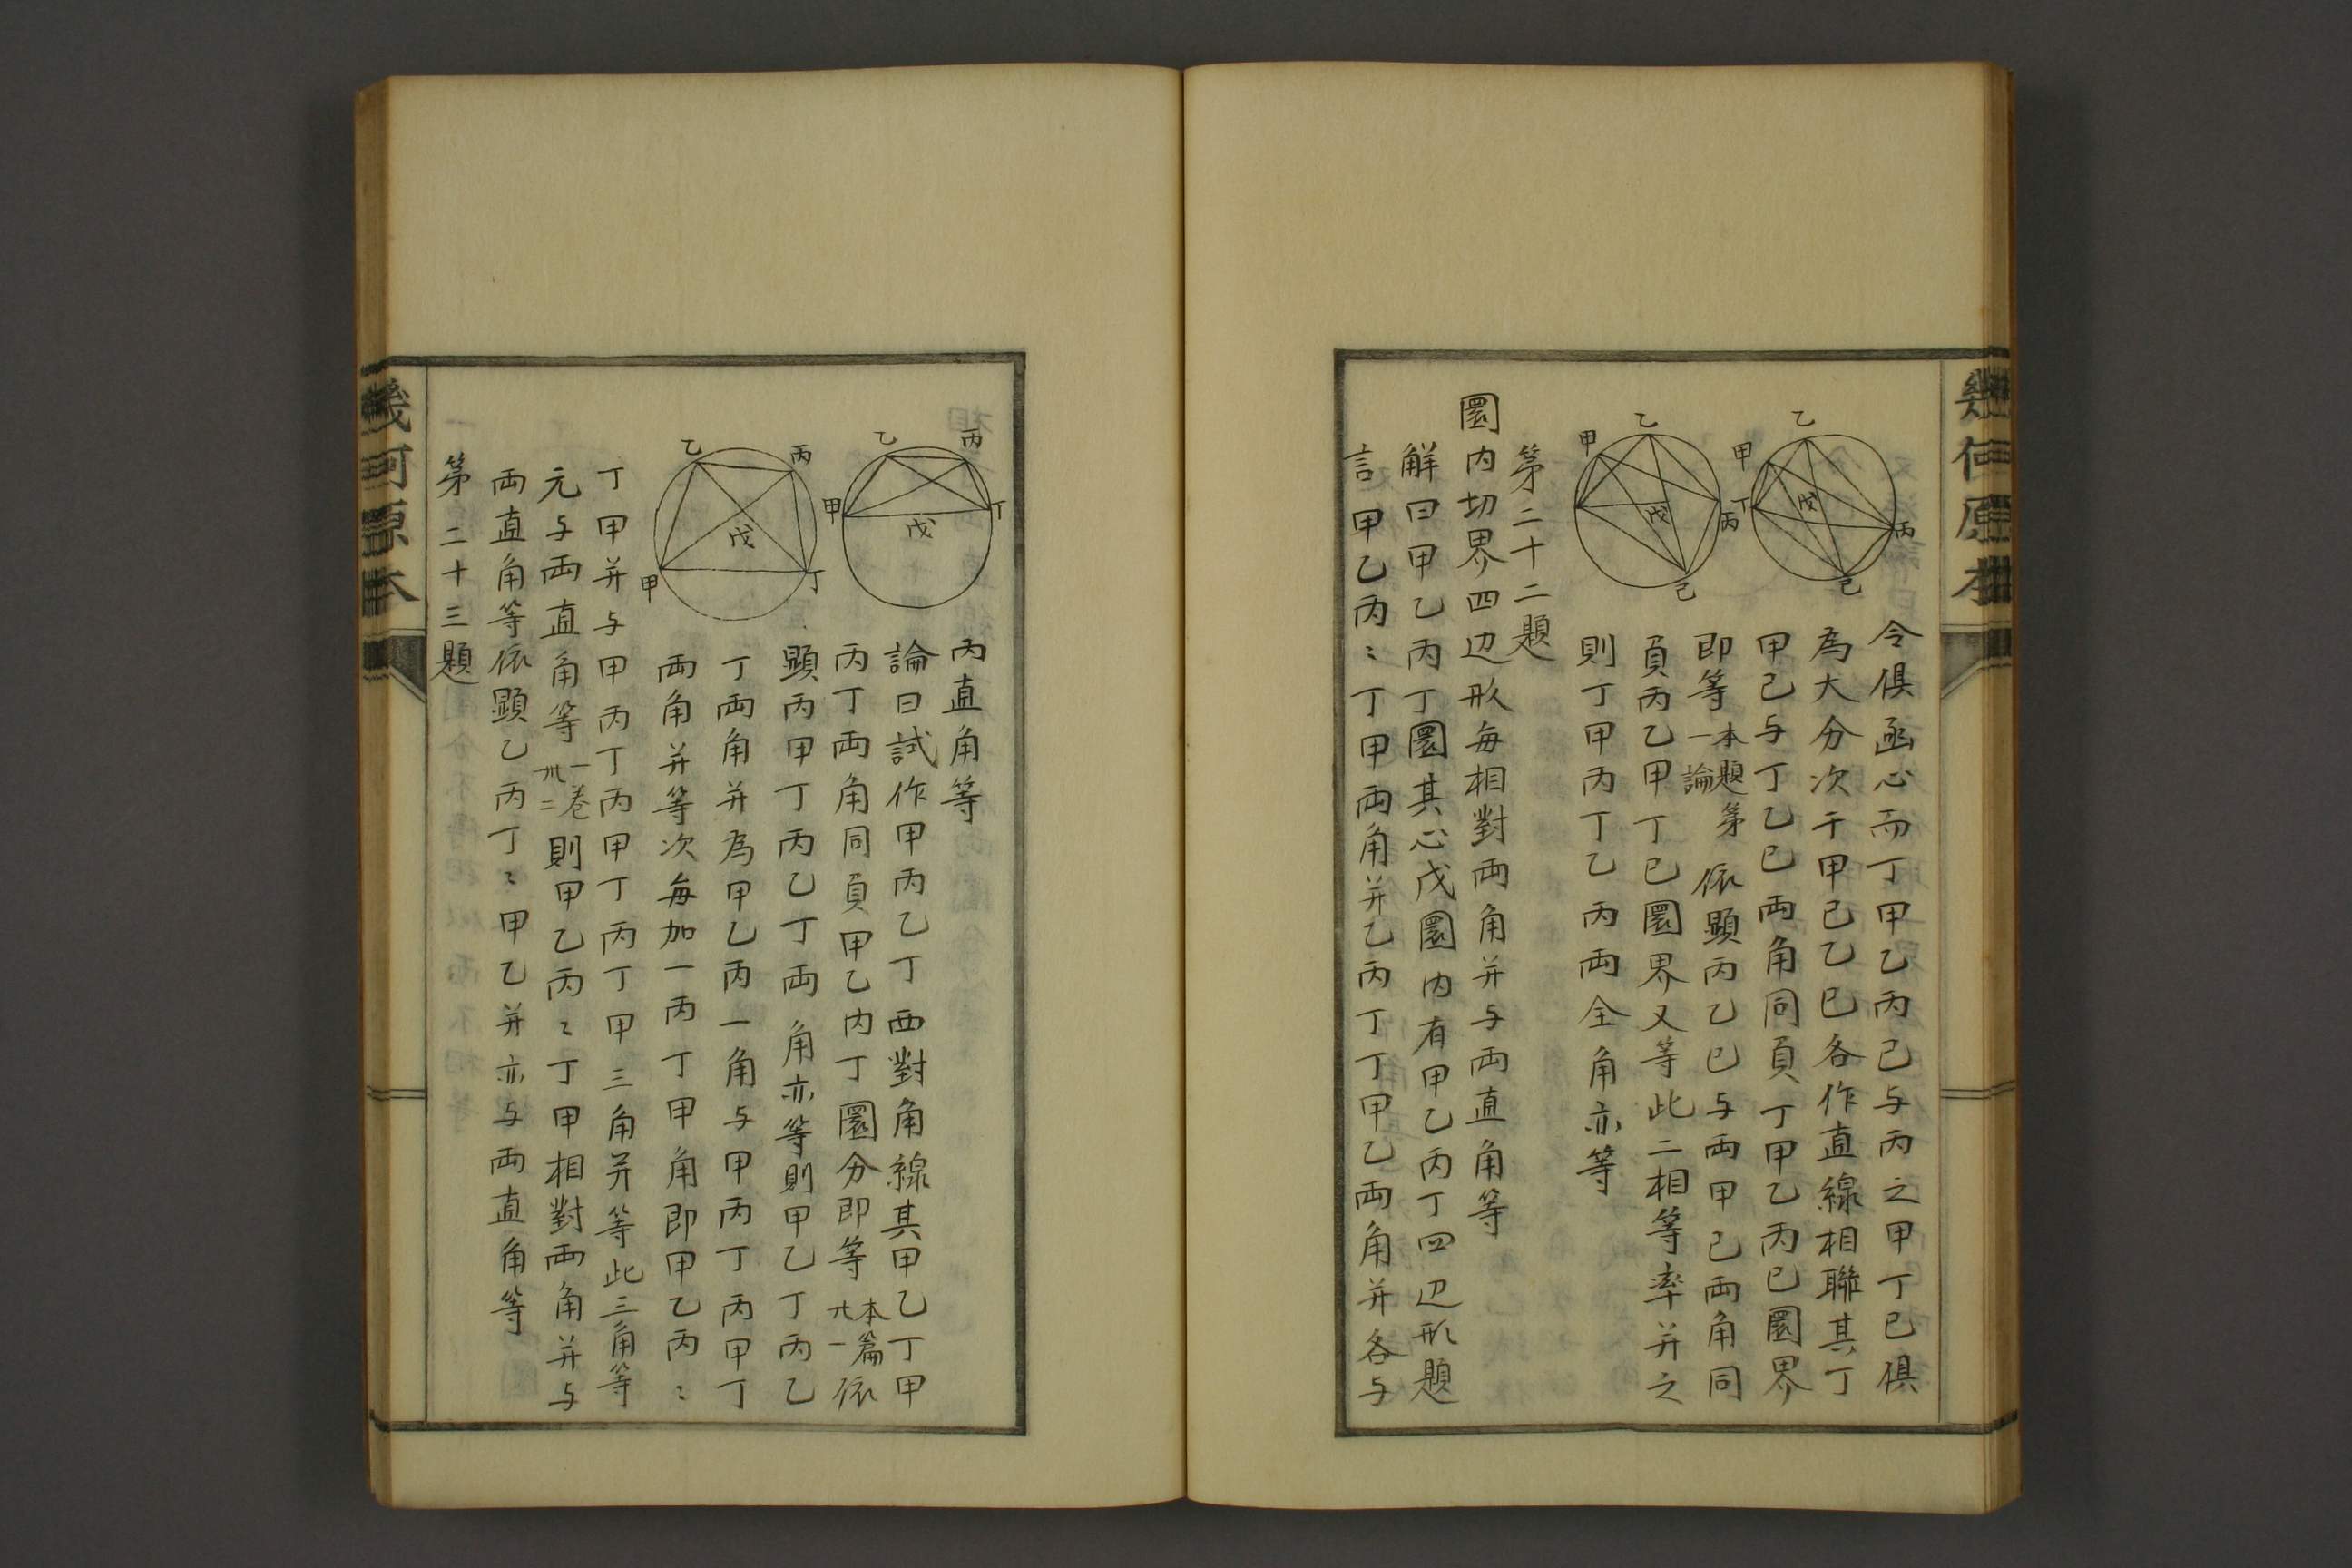 幾何原本
乙
甲
丁
戊
丙
己
乙
甲
戊
丙
己
令俱函心而丁甲乙丙己与丙之甲丁已俱
為大分次干甲已乙已各作直線相聯其丁
甲己与丁乙已両角同負丁甲乙丙已圜界
即等本題第一論依顯丙乙已与丙甲己両角同
負丙乙甲丁已圜界又等此二相等率并之
則丁甲丙丁乙丙両全角亦等
第二十二題
圜内切界四边形每相對両角并与両直角等
解曰甲乙丙丁圜其心戊圜内有甲乙丙丁四边形題
言甲乙丙〻丁甲両角并乙丙丁丁甲乙両角并各与
丙直角等
乙
丙
甲
丁
戊
乙
丙
戊
甲
丁
論曰試作甲丙乙丁西對角線其甲乙丁甲
丙丁両角同負甲乙内丁圜分即等本篇卄一依
顯丙甲丁丙乙丁両角亦等則甲乙丁丙乙
丁両角并為甲乙丙一角与甲丙丁丙甲丁
両角并等次每加一丙丁甲角即甲乙丙〻
丁甲并与甲丙丁丙甲丁丙丁甲三角并等此三角等
元与両直角等一卷卅二則甲乙丙〻丁甲相對両角并与
両直角等依顯乙丙丁〻甲乙并亦与両直角等
第二十三題
幾何原本